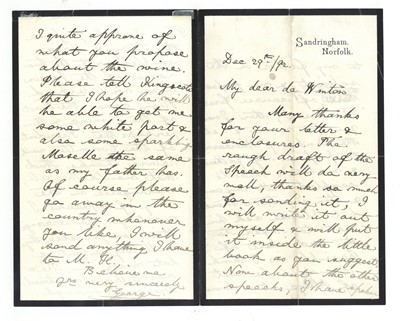 Sandringham.
Norfolk.
Dec 29th/92
My dear de Winton
Many thanks
for your letter &
enclosures. The
rough draft of the
Speech will do very
well, thanks so much
for sending it, I
will write it out
myself & will put
it inside the little
book as you suggest.
Now about the other
speech, I have
I quite approve of
what you propose
about the wine.
Please tell Kingscote
that I hope he will
be able to get me
some white port &
also some sparkling
Moselle the same
as my father has.
Of course please
go away in the
country whenever
you like, I will
send anything I have
to M. H.
Believe me
yrs very sincerely
George.